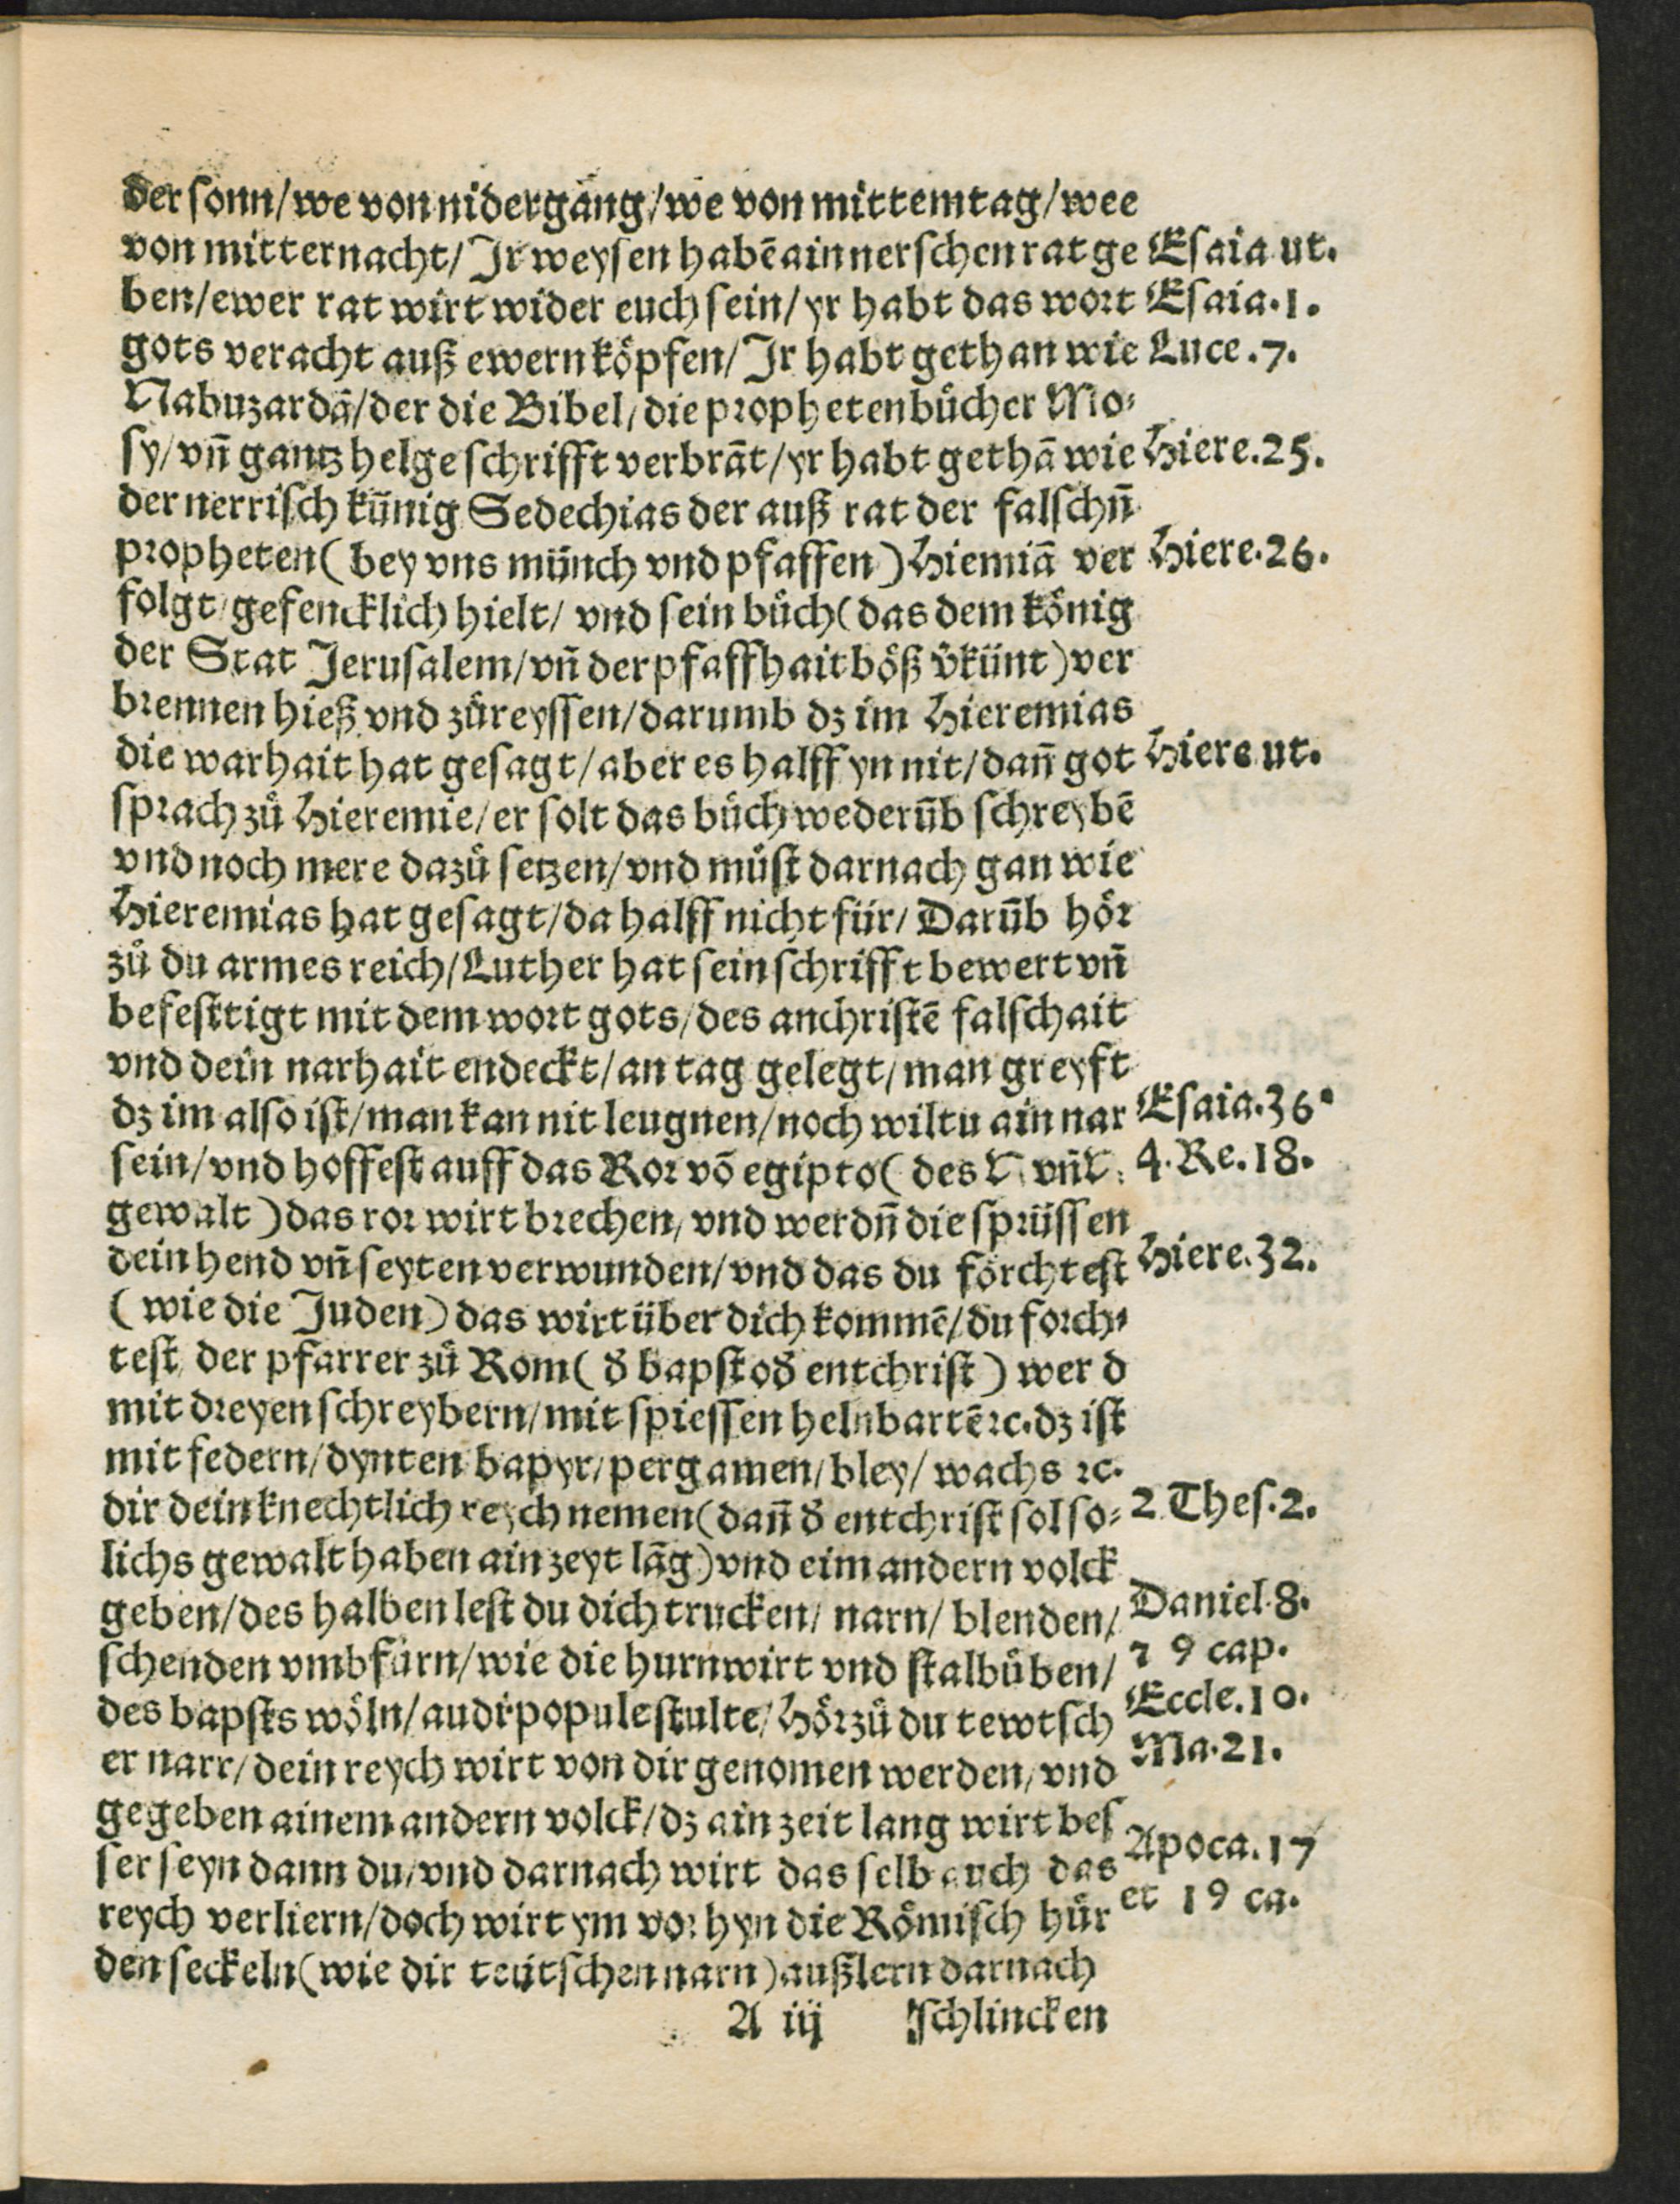 der sonn/we von nidergang/we von mittemtag/wee
von mitternacht/ Jr weysen habē ain nerschen rat ge Esaia ut.
ben/ewer rat wirt wider euch sein/yr habt das wort Esaia.1.
gots veracht auß ewern köpfen/Jr habt gethan wie Luce.7.
Nabuzardā/der die Bibel/die prophetenbůcher Mo⸗
sy/vñ gantz helge schrifft verbrāt/yr habt gethā wie Hiere.25.
der nerrisch künig Sedechias der auß rat der falschñ
propheten(bey vns münch vnd pfaffen)Hiemiā ver Hiere.26.
folgt/gefencklich hielt/ vnd sein bůch(das dem könig
der Stat Jerusalem/vñ der pfaffhait böß v̄künt)ver
brennen hieß vnd zůreyssen/darumb dz im Hieremias
die warhait hat gesagt/aber es halff yn nit/dañ got Hiere ut.
sprach zů Hieremie/er solt das bůch wederūb schreybē
vnd noch mere dazů setzen/vnd můst darnach gan wie
Hieremias hat gesagt/da halff nicht für/ Darūb hör
zů du armes reich/Luther hat sein schrifft bewert vñ
befesttigt mit dem wort gots/des anchristē falschait
vnd dein narhait endeckt/an tag gelegt/man greyft
dz im also ist/man kan nit leugnen/noch wiltu ain nar Esaia.36.
sein/vnd hoffest auff das Ror vō egipto(des N vñ N. 4.Re.18.
gewalt)das ror wirt brechen/vnd werdñ die sprüssen
dein hend vñ seyten verwunden/vnd das du förchtest Hiere.32.
(wie die Juden)das wirt über dich kommē/du forch⸗
test der pfarrer zů Rom(d̄ bapst od̄ entchrist)wer d
mit dreyen schreybern/mit spiessen helnbartē ꝛc.dz ist
mit federn/dynten bapyr/pergamen/bley/wachs ꝛc.
dir dein knechtlich reych nemen(dañ d̄ entchrist sol so⸗ 2 Thes.2.
lichs gewalt haben ain zeyt lāg)vnd eim andern volck
geben/des halben lest du dich trucken/narn/blenden/ Daniel.8.
schenden vmbfürn/wie die hurnwirt vnd stalbůben/ ⁊ 9 cap.
des bapsts wöln/audi popule stulte/Hör zů du tewtsch Eccle.10.
er narr/dein reych wirt von dir genomen werden/vnd Ma.21.
gegeben ainem andern volck/dz ain zeit lang wirt bes
ser seyn dann du/vnd darnach wirt das selb auch das Apoca.17
reych verliern/doch wirt ym vor hyn die Römisch hůr et 19 ca.
den seckeln(wie dir teütschen narn)außlern darnach
A iij schlincken